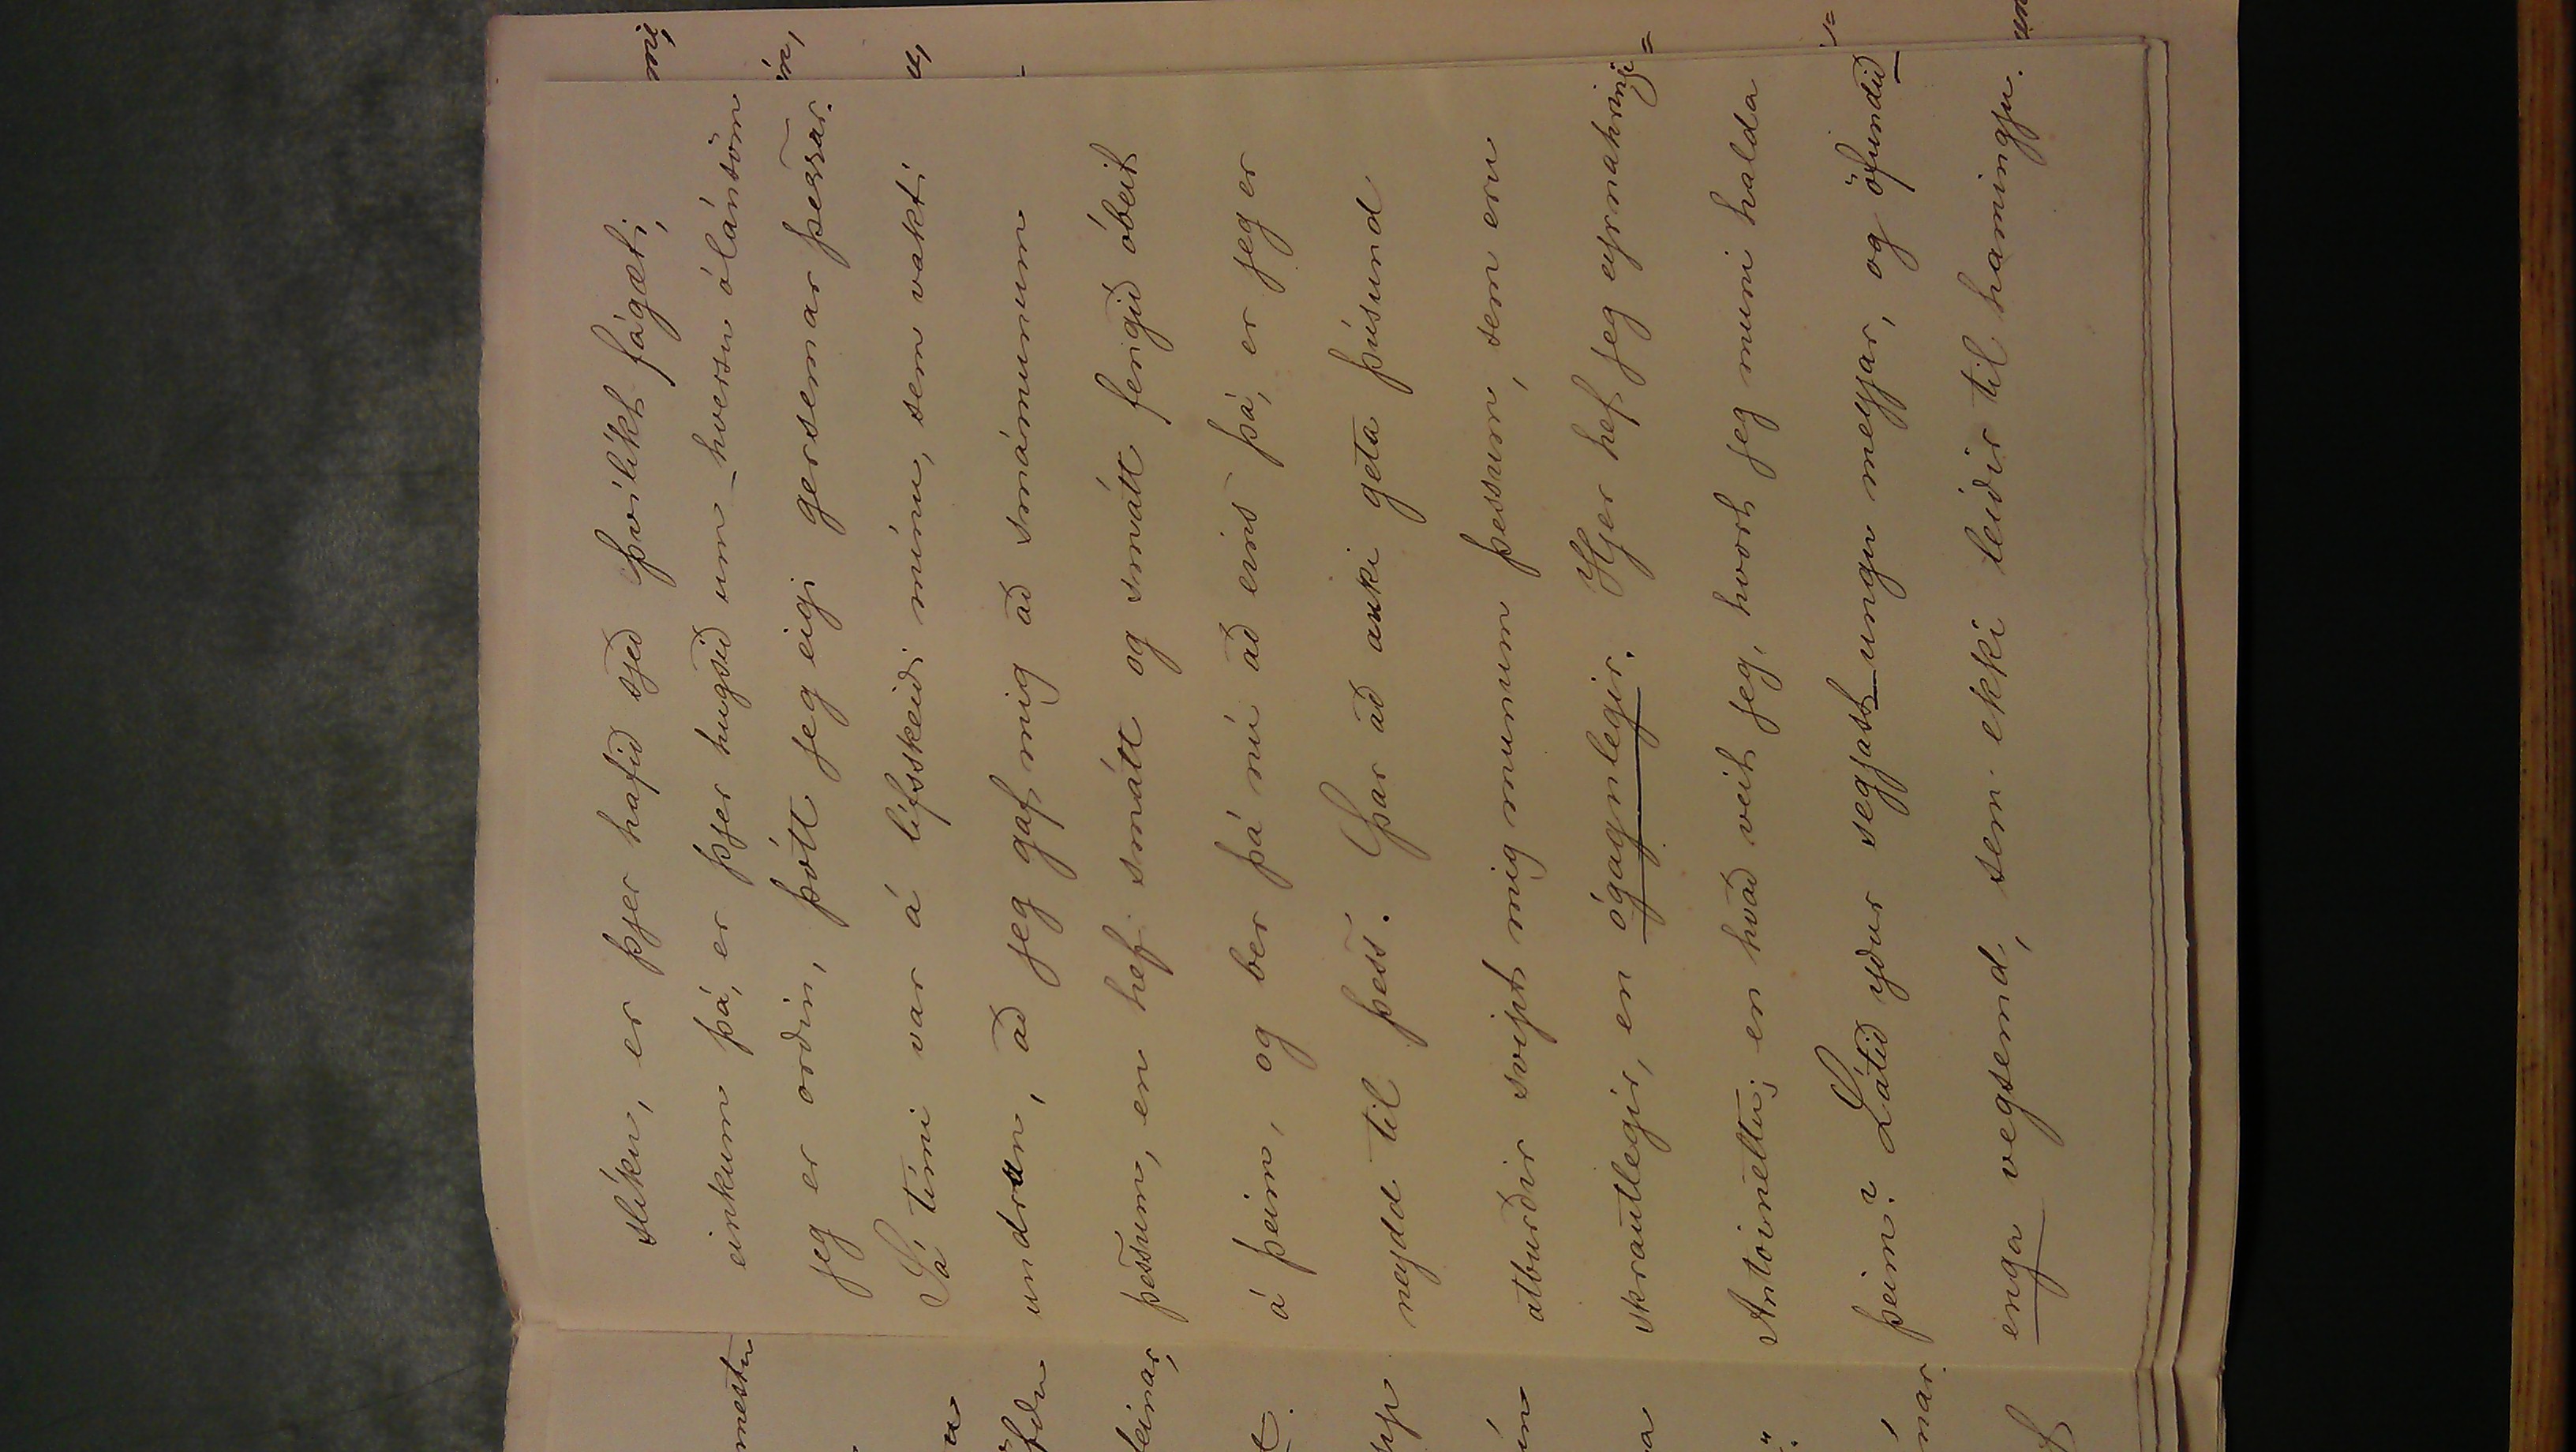 slíku, er þjer hafið sjeð þvílíkt fágæti,
einkum þá, er þjer hugsið um hversu ólánsöm
jeg er orðin, þótt jeg eigi gersemar þessar.
Sá tími var á lífsskeiði mínu, sem vakti
undrun, að jeg gaf mig að smámunum
þessum, en hef smátt og smátt fengið óbeit
á þeim, og ber þá nú að eins þá, er jeg er
neydd til þess. Þar að auki geta þúsund
atburðir svipt mig munum þessum, sem eru
skrautlegir, en ógagnlegir. Hjer hef jeg eyrnahringi
Antoinettu; en hvað veit jeg, hvort jeg muni halda
þeim? Látið yður segjast ungu meyjar, og öfundið
enga vegsemd, sem ekki leiðir til hamingju.
mestu